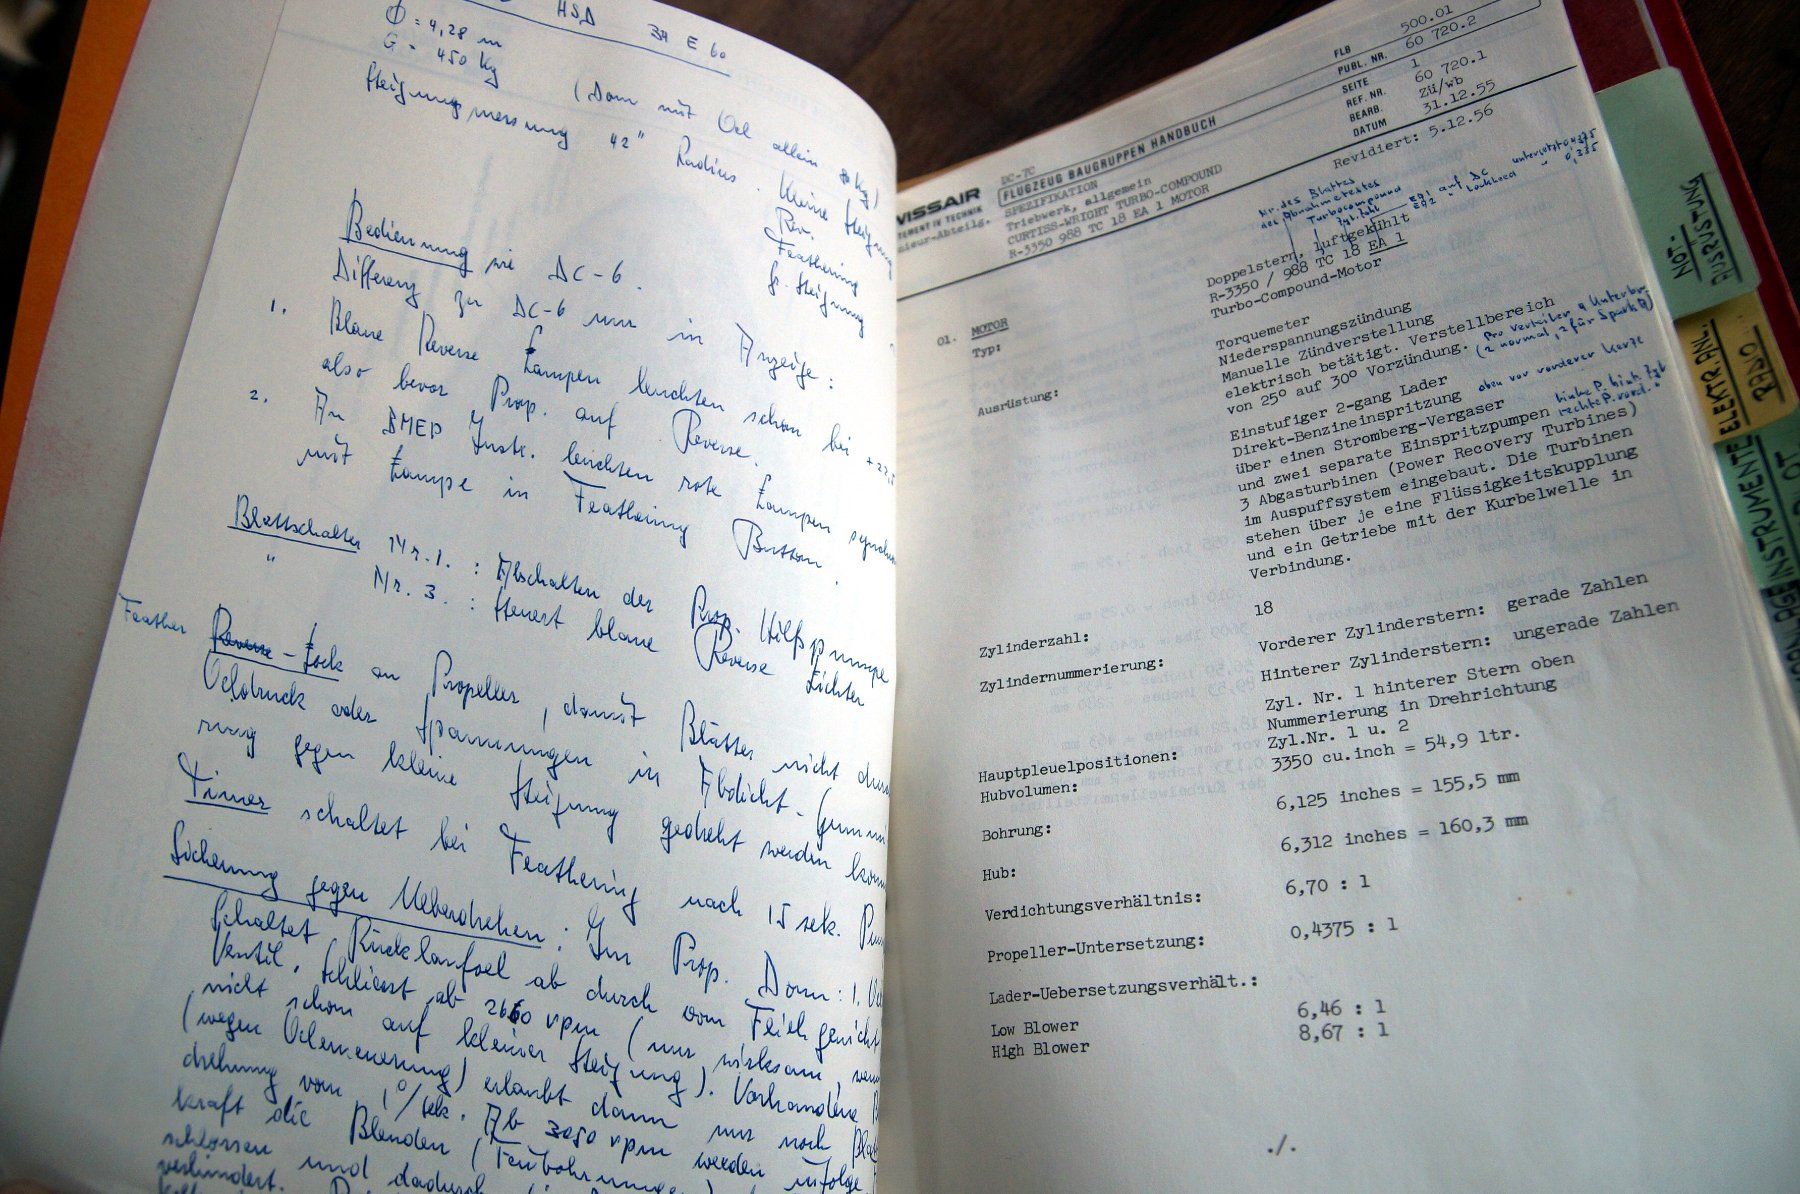 HSD 34 E 60
Φ = 4,28 m
G = 450 Kg
(Dom mit Oel allein Kg)
Steigungsmessung 42" Radius. Kleine Steigung
Rev.
Feathering
Gr. Steigung
Bedienung wie DC-6.
Differenz zu DC-6 nur in Anzeige:
1. Blaue Reverse Lampen leuchten schon bei
also bevor Prop. auf Reverse.
2. An BMEP Instr. leuchten rote Lampen
mit Lampe in Feathering Button.
Blattschalter Nr. 1. : Abschalten der Prop. Hilfspumpe
" Nr. 3. : Steuert blaue Reverse Lichter
Feather Reverse-Lock an Propeller, damit Blätter nicht
Oeldruck oder Spannungen in Abdicht-(Gummi
rung gegen kleine Steigung gedreht werden
Timer schaltet bei Feathering nach 15 sek.
Sicherung gegen Ueberdrehen: Im Prop. Dom: 1.
Schaltet Rücklaufoel ab durch vom Fliehgewicht
Ventil. Schliesst ab 2660 rpm (nur wirksam, wenn
nicht schon auf kleiner Steigung). Vorhandene
(wegen Oelerneuerung) erlaubt dann nur noch
drehung von 1°/sek. Ab 3050 rpm werden infolge
kraft die Blenden
schlossen und dadurch
verhindert.
SWISSAIR
DEPARTEMENT IV TECHNIK
Ingenieur-Abteilg.
DC-7C
FLUGZEUG BAUGRUPPEN HANDBUCH
SPEZIFIKATION
Triebwerk, allgemein
CURTISS-WRIGHT TURBO-COMPOUND
R-3350 988 TC 18 EA 1 MOTOR
FLB 500.01
PUBL. NR. 60 720.2
SEITE 1
REF. NR. 60 720.1
BEARB. Zü/wb
DATUM 31.12.55
Revidiert: 5.12.56
Nr. des Blattes
des Abnahmetestes
Turbocompound
Zyl. Zahl
EA1 auf DC untersetzt 0,4375
EA2 " Lockheed " 0,355
01. MOTOR
Typ:
Doppelstern, luftgekühlt
R-3350 / 988 TC 18 EA 1
Turbo-Compound-Motor
Ausrüstung:
Torquemeter
Niederspannungszündung
Manuelle Zündverstellung
elektrisch betätigt. Verstellbereich
von 25° auf 30° Vorzündung.
Pro Verteiler 9 Unterbr.
(2 normal, 2 für Spark A)
Einstufiger 2-gang Lader
Direkt-Benzineinspritzung
oben vor vorderer Kerze
über einen Stromberg-Vergaser
und zwei separate Einspritzpumpen
linke P. hint. Zyl
rechte P. vord. "
3 Abgasturbinen (Power Recovery Turbines)
im Auspuffsystem eingebaut. Die Turbinen
stehen über je eine Flüssigkeitskupplung
und ein Getriebe mit der Kurbelwelle in
Verbindung.
Zylinderzahl: 18
Zylindernummerierung: Vorderer Zylinderstern: gerade Zahlen
Hinterer Zylinderstern: ungerade Zahlen
Zyl. Nr. 1 hinterer Stern oben
Nummerierung in Drehrichtung
Hauptpleuelpositionen: Zyl.Nr. 1 u. 2
Hubvolumen: 3350 cu.inch = 54,9 ltr.
Bohrung: 6,125 inches = 155,5 mm
Hub: 6,312 inches = 160,3 mm
Verdichtungsverhältnis: 6,70 : 1
Propeller-Untersetzung: 0,4375 : 1
Lader-Uebersetzungsverhält.:
Low Blower 6,46 : 1
High Blower 8,67 : 1
./.
NOT.
AUSRÜSTUNG
ELEKTR. ANL.
RADIO
INSTRUMENTE